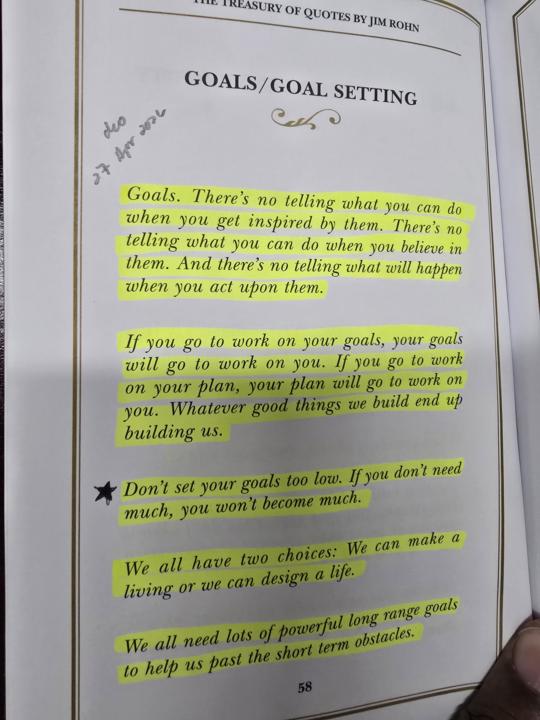 THE TREASURY OF QUOTES BY JIM ROHN
GOALS/GOAL SETTING
27 Apr 2026
Goals. There's no telling what you can do
when you get inspired by them. There's no
telling what you can do when you believe in
them. And there's no telling what will happen
when you act upon them.
If you go to work on your goals, your goals
will go to work on you. If you go to work
on your plan, your plan will go to work on
you. Whatever good things we build end up
building us.
Don't set your goals too low. If you don't need
much, you won't become much.
We all have two choices: We can make a
living or we can design a life.
We all need lots of powerful long range goals
to help us past the short term obstacles.
58